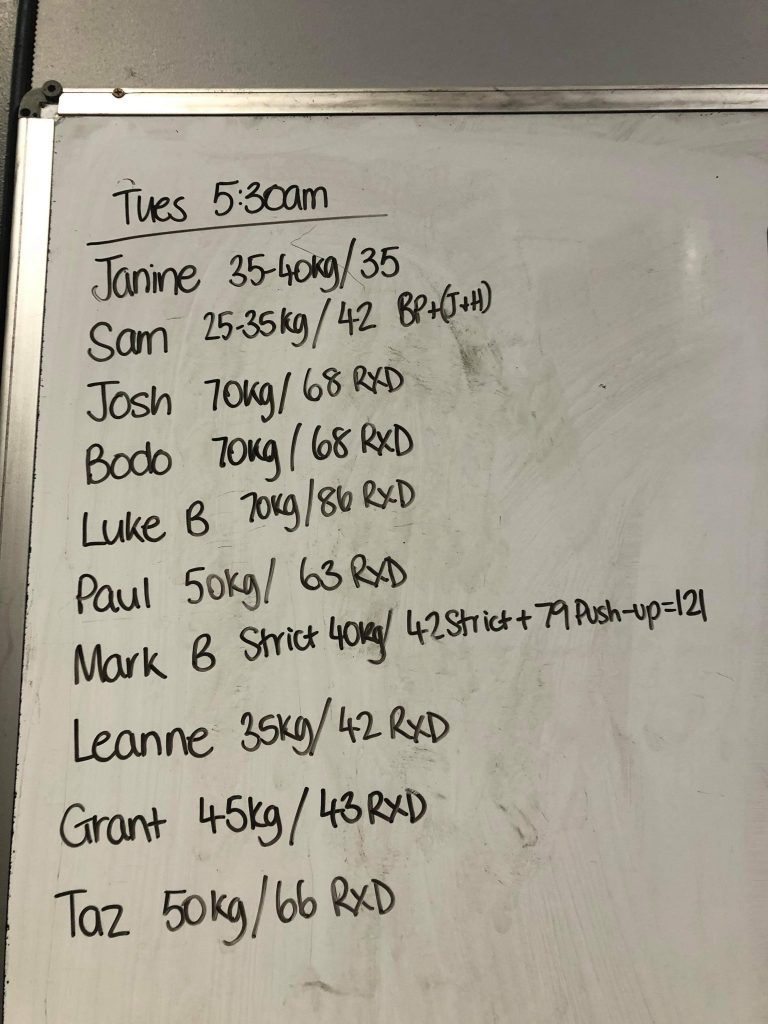 Tues 5:30am
Janine 35-40kg/35
Sam 25-35kg/42 BP+(J+H)
Josh 70kg/68 RXD
Bodo 70kg/68 RXD
Luke B 70kg/86 RXD
Paul 50kg/ 63 RXD
Mark B Strict 40kg/ 42 Strict + 79 Push-up=121
Leanne 35kg/42 RXD
Grant 45kg/43 RXD
Taz 50kg/66 RXD